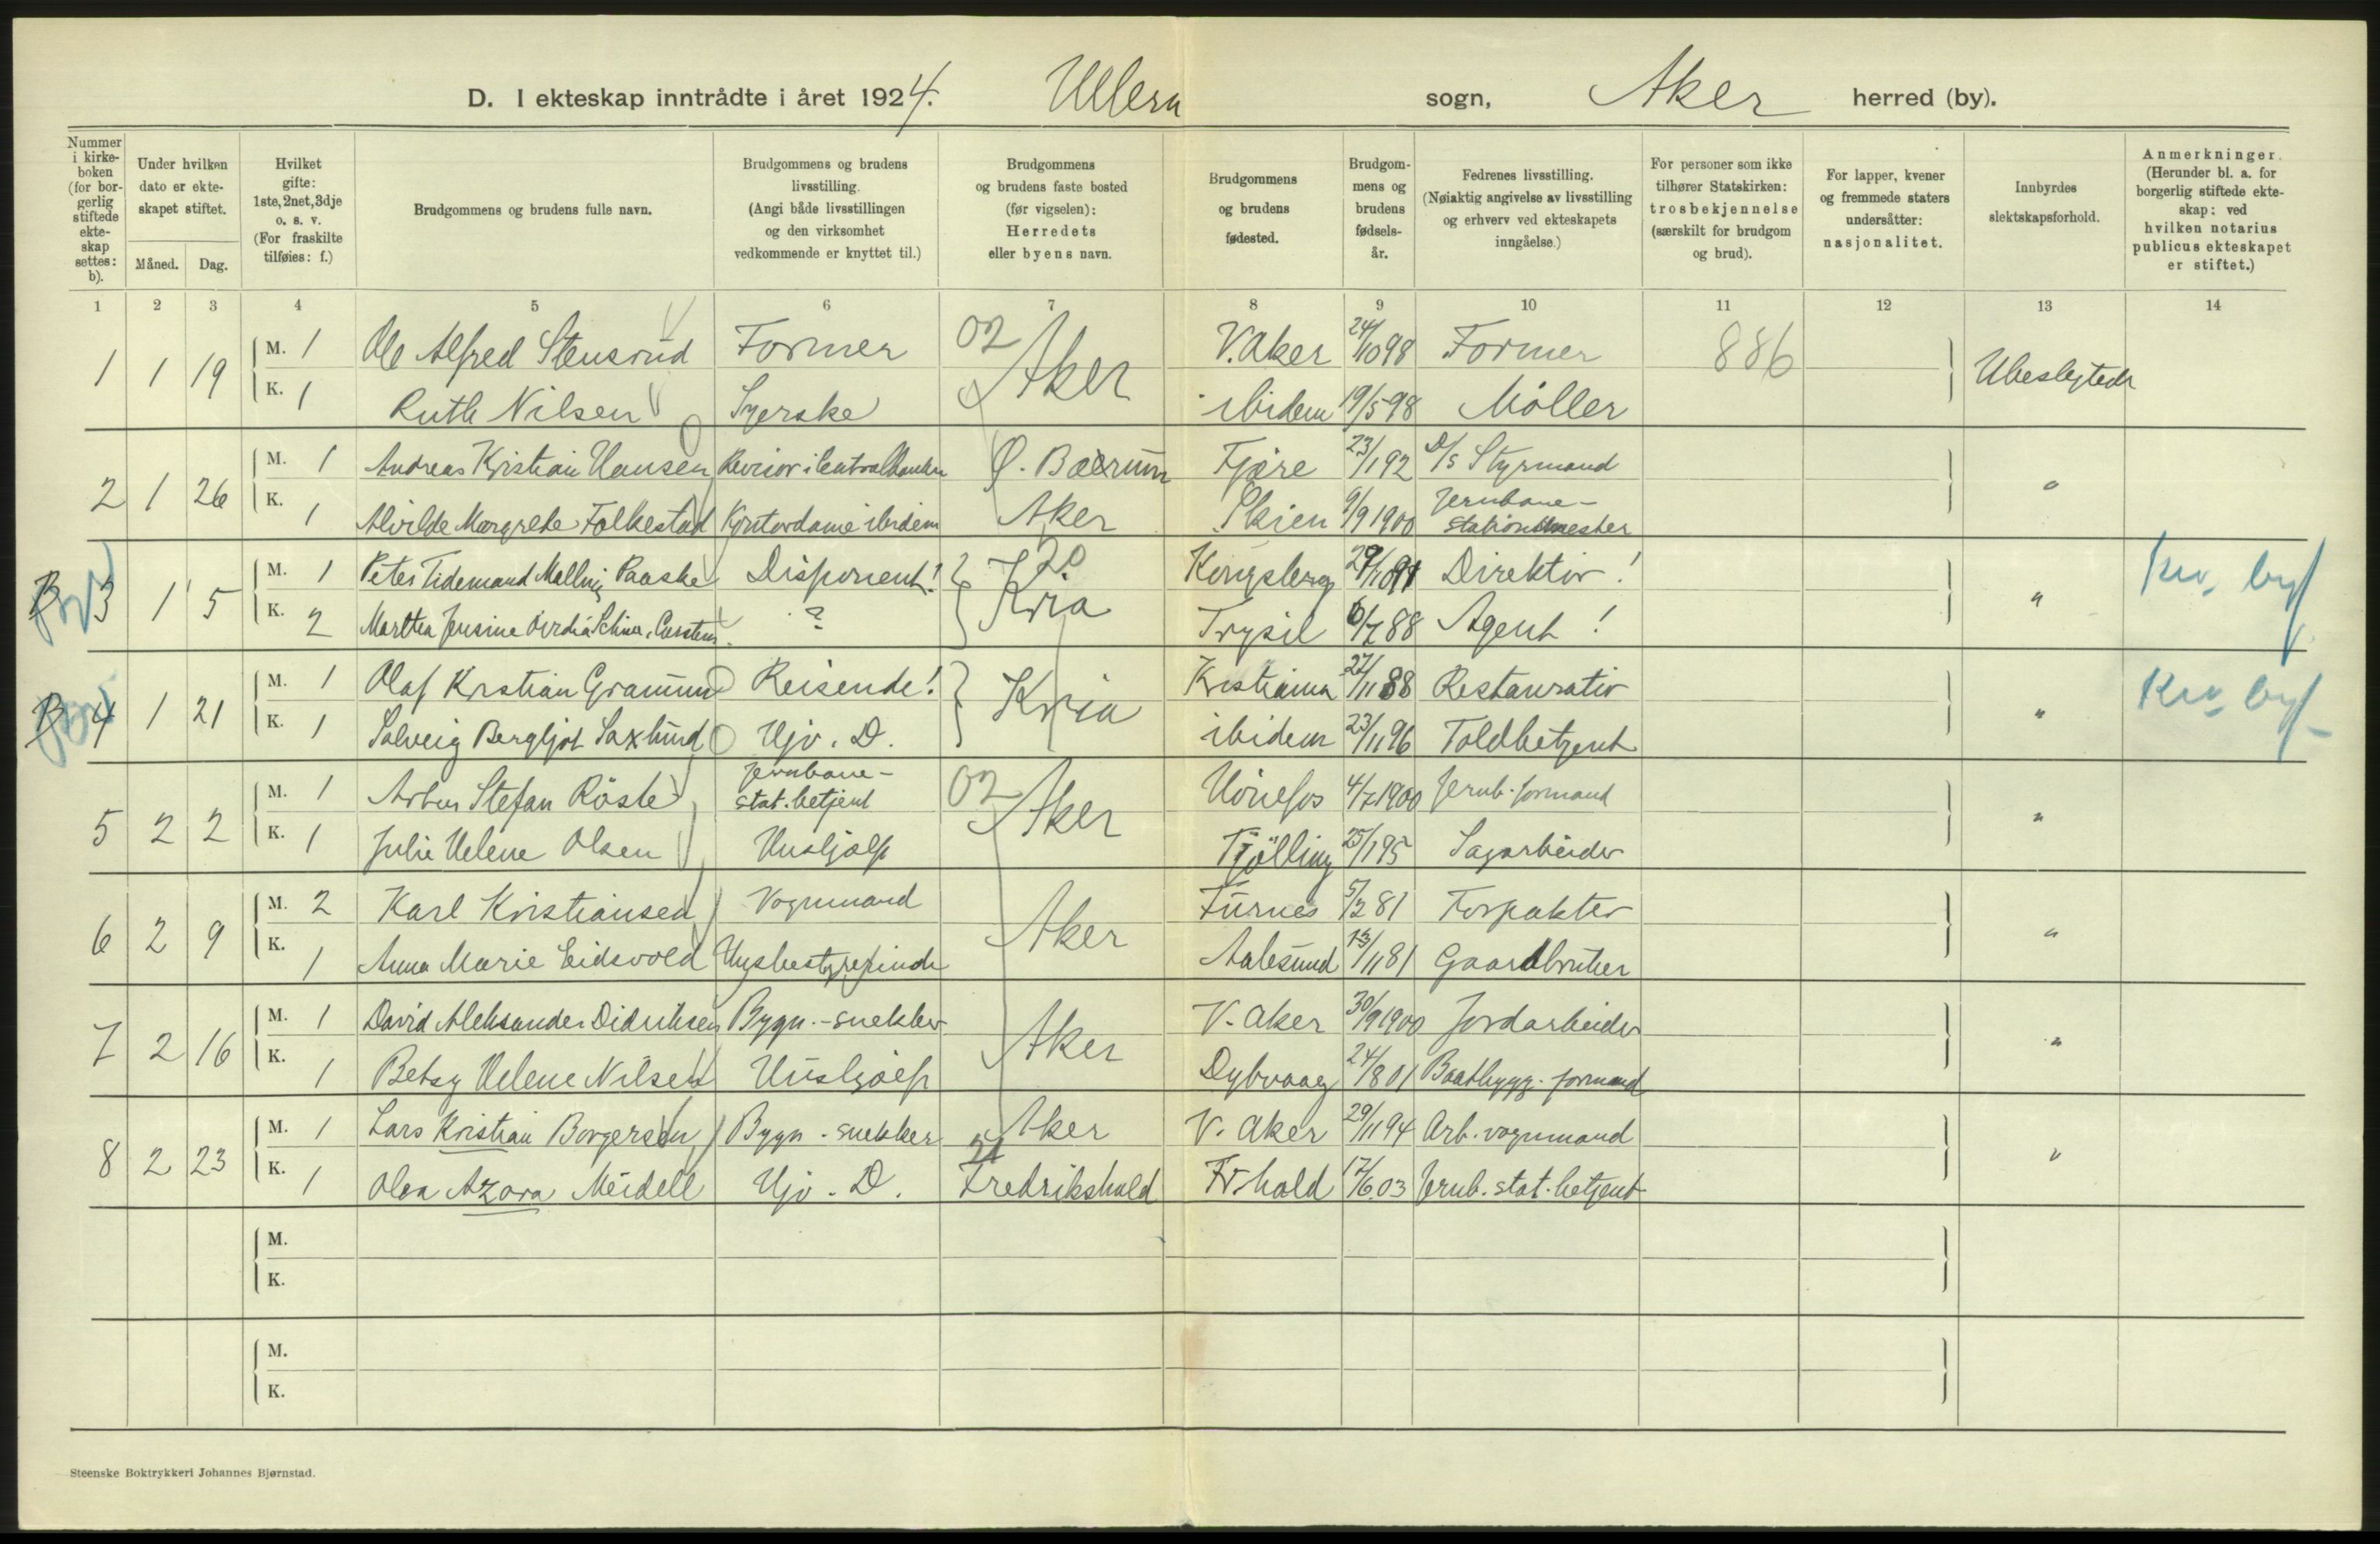 D. I ekteskap inntrådte i året 1924. Ullern sogn, Aker herred (by).
Nummer i kirkeboken (for borgerlig stiftede ekteskap settes: b).
Under hvilken dato er ekteskapet stiftet.
Måned. Dag.
Hvilket gifte: 1ste, 2net, 3dje o. s. v. (For fraskilte tilføies: f.)
Brudgommens og brudens fulle navn.
Brudgommens og brudens livsstilling. (Angi både livsstillingen og den virksomhet vedkommende er knyttet til.)
Brudgommens og brudens faste bosted (før vigselen): Herredets eller byens navn.
Brudgommens og brudens fødested.
Brudgommens og brudens fødselsår.
Fedrenes livsstilling. (Nøiaktig angivelse av livsstilling og erhverv ved ekteskapets inngåelse.)
For personer som ikke tilhører Statskirken: trosbekjennelse (særskilt for brudgom og brud).
For lapper, kvener og fremmede staters undersåtter: nasjonalitet.
Innbyrdes slektskapsforhold.
Anmerkninger. (Herunder bl. a. for borgerlig stiftede ekteskap: ved hvilken notarius publicus ekteskapet er stiftet.)
1 2 3 4 5 6 7 8 9 10 11 12 13 14
1 1 19 M. 1 Ole Alfred Stensrud Former 02 Aker V. Aker 24/10 98 Former 886 Ubeslegtede
K. 1 Ruth Nilsen Syerske ibidem 19/5 98 Møller
2 1 26 M. 1 Andreas Kristian Hansen Revisor i Centralbanken Ø. Bærum Fjære 23/1 92 D/S Styrmand "
K. 1 Alvilde Margrethe Folkestad Kontordame ibidem Aker Skien 9/9 1900 Jernbane-stationsmester
B 3 1 5 M. 1 Peter Tidemand Malling Paaske Disponent! 20 Kria Kongsberg Direktør! " Krv. byf.
K. 2 Marthea Jensine ? Trysil 6/7 88 Agent!
B 4 1 21 M. 1 Olaf Kristian Gramm Reisende! Kria Kristiania 27/11 88 Restauratør " Krv. byf.
K. 1 Solveig Bergljot Saxlund Hjv. D. ibidem 23/11 96 Toldbetjent
5 2 2 M. 1 Stefan Röste Jernbane-stat. betjent 02 Aker Hönefos 4/7 1900 Jernb. formand "
K. 1 Julie Helene Olsen Hushjælp Tjölling 25/1 95 Sagarbeider
6 2 9 M. 2 Karl Kristiansen Vognmand Aker Furnes 5/2 81 Forpakter "
K. 1 Anna Marie Eidsvold Husbestyrerinde Aalesund 13/11 81 Gaardbruker
7 2 16 M. 1 David Aleksander Didriksen Bygn.-snekker Aker V. Aker 30/9 1900 Jordarbeider "
K. 1 Betsy Helene Nilsen Hushjælp Dybvaag 24/8 01 Baatbygg. formand
8 2 23 M. 1 Lars Kristian Borgersen Bygn.-snekker Aker V. Aker 29/11 94 Arb. vognmand "
K. 1 Olea Azora Meidell Hjv. D. 21 Fredrikshald Fr.hald 17/6 03 Jernb. stat. betjent
M.
K.
M.
K.
Steenske Boktrykkeri Johannes Bjørnstad.